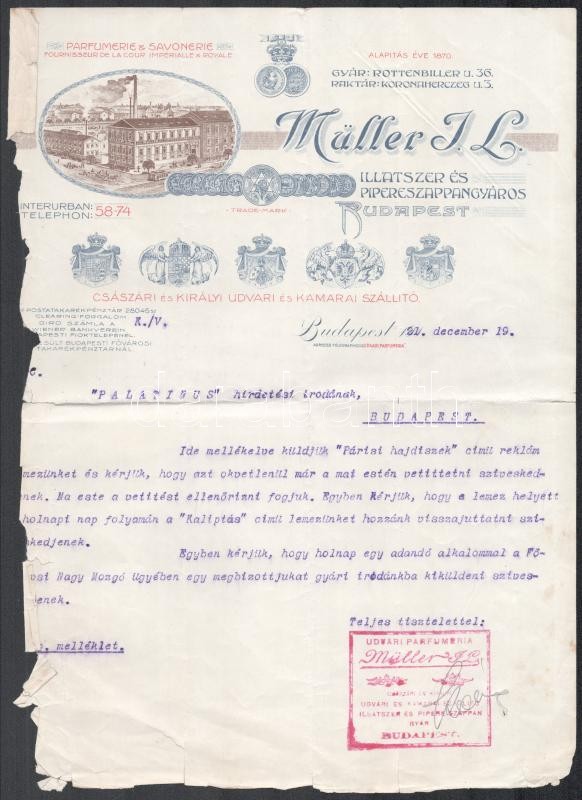 PARFUMERIE & SAVONERIE
FOURNISSEUR DE LA COUR IMPÉRIALE & ROYALE
ALAPITÁS ÉVE 1870.
GYÁR: ROTTENBILLER U. 36.
RAKTÁR: KORONAHERCZEG U. 3.
Müller J. L.
ILLATSZER ÉS
PIPERESZAPPANGYÁROS
BUDAPEST
INTERURBAN:
TELEPHON: 58-74
TRADE-MARK
CSÁSZÁRI ÉS KIRÁLYI UDVARI ÉS KAMARAI SZÁLLITÓ.
POSTATAKARÉKPÉNZTÁR 28045
CLEARING-FORGALOM
GIRO SZÁMLA A
WIENER BANKVEREIN
BUDAPESTI FIOKTELEPÉNÉL
SÜLT BUDAPESTI FŐVÁROSI
TAKARÉKPÉNZTÁRNÁL
K./V.
Budapest 191 . december 19.
c.
"PALATINUS" hirdetési irodának,
BUDAPEST.
Ide mellékelve küldjük "Párisi hajdiszek" cimü reklám
mezünket és kérjük, hogy azt okvetlenül már a mai estén vetittetni sziveskedj-
nek. Ma este a vetitést ellenőrizni fogjuk. Egyben kérjük, hogy e lemez helyett
holnapi nap folyamán a "Kaliptás" cimü lemezünket hozzánk visszajuttatni szi-
kedjenek.
Egyben kérjük, hogy holnap egy adandó alkalommal a Fő-
osi Nagy Mozgó ügyében egy megbizottjukat gyári irodánkba kiküldeni szives-
jenek.
Teljes tisztelettel:
. melléklet.
UDVARI PARFUMERIA
Müller J. L.
CSÁSZÁRI ÉS KIRÁLYI
UDVARI ÉS KAMARAI SZÁLLITÓ
ILLATSZER ÉS PIPERE SZAPPAN
GYÁR
BUDAPEST.